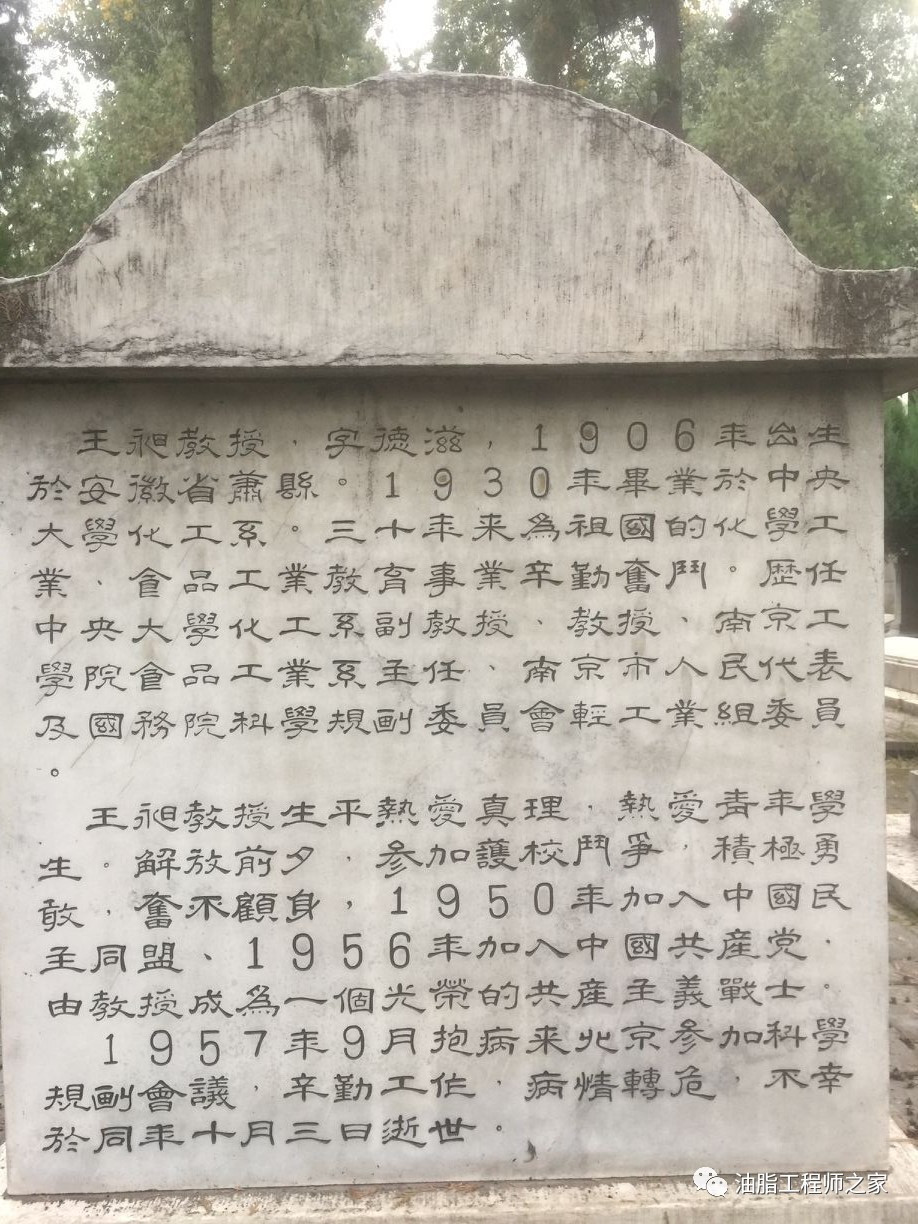 王昶教授，字德滋，1906年出生
於安徽省蕭縣。1930年畢業於中央
大學化工系。三十年来為祖國的化學工
業、食品工業教育事業辛勤奮鬥。歴任
中央大學化工系副教授、教授、南京工
學院食品工業系主任、南京市人民代表
及國務院科學規劃委員會輕工業組委員
。
王昶教授生平熱愛真理，熱愛青年學
生。解放前夕，参加護校鬥爭，積極勇
敢，奮不顧身，1950年加入中國民
主同盟、1956年加入中國共産党，
由教授成為一個光榮的共産主義戰士。
1957年9月抱病来北京参加科學
規劃會議，辛勤工作，病情轉危，不幸
於同年十月三日逝世。
油脂工程师之家